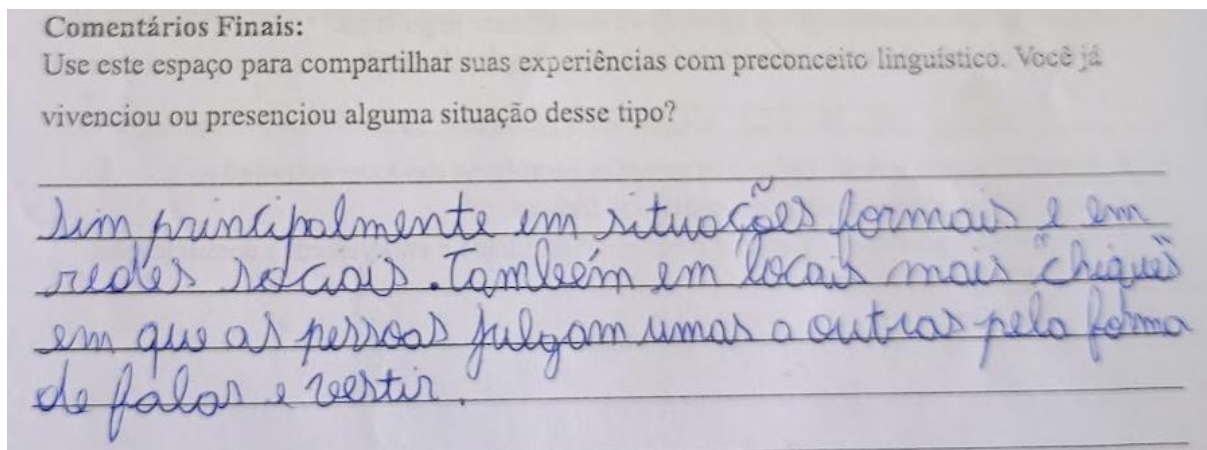 Comentários Finais:
Use este espaço para compartilhar suas experiências com preconceito linguístico. Você já
vivenciou ou presenciou alguma situação desse tipo?
Sim principalmente em situações formais e em
redes sociais. Também em locais mais "chiques"
em que as pessoas julgam umas a outras pela forma
de falar e vestir.